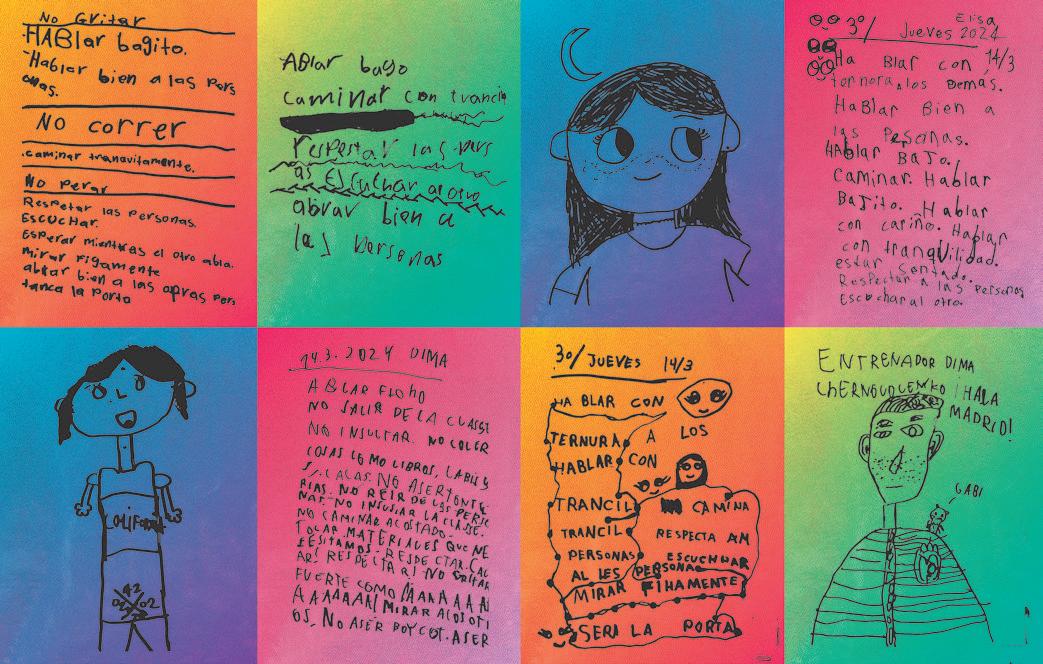 No Gritar
HABlar bagito.
Hablar bien a las Pers
onas.
No correr
caminar tranquitamente.
No Perar
Respetar las Personas.
Escuchar.
Esperar mientras el otro abla.
mirar figamente
ablar bien a las Pers
la Porta
Ablar bago
caminar con trancil
respestar las pers
as Esculchar al otro
ablar bien a
las personas
Elisa
3º/ Jueves 2024
Ha Blar con 14/3
ternora a los Demás.
HaBlar Bien a
las Pesonas.
HAblar BaJo.
Caminar. Hablar
BaJito. Hablar
con cariño. Hablar
con tranqUilidad.
estar Sentado.
Respectar a las Personas
Escuchar al otro.
COLIFORNIA
14.3.2024 DIMA
ABLAR FLOHO
NO SALIR DE LA CLASSE
NO INSULTAR. NO COLER
COSAS COMO LIBROS, LABIS Y
NO ASER TONTE
RIAS. NO REIR DE LAS PERSO
NAS. NO INSULAR LA CLASSE.
NO CAMINAR ACOSTADO.
TOCAR MATERIALES QUE NE
SESITAMOS. RESDECTAR. CAL
AR! RESPECTAR! NO GRITAR
FUERTE COMO AAAAAAA
AAAAAA! MIRAR A LOS OTI
OS. NO ASER BOYCOT. ASER
3º/ JUEVES 14/3
HA BLAR CON
TERNURA A LOS
HABLAR CON
TRANCIL CAMINA
TRANCIL RESPECTA AM
PERSONAS ESCUCHUAR
AL LES PERSONA
MIRAR FIHAMENTE
SERA LA PORTA
ENTRENADOR DIMA
CHERNOUQUENKO ¡HALA
MADRID!
GABI